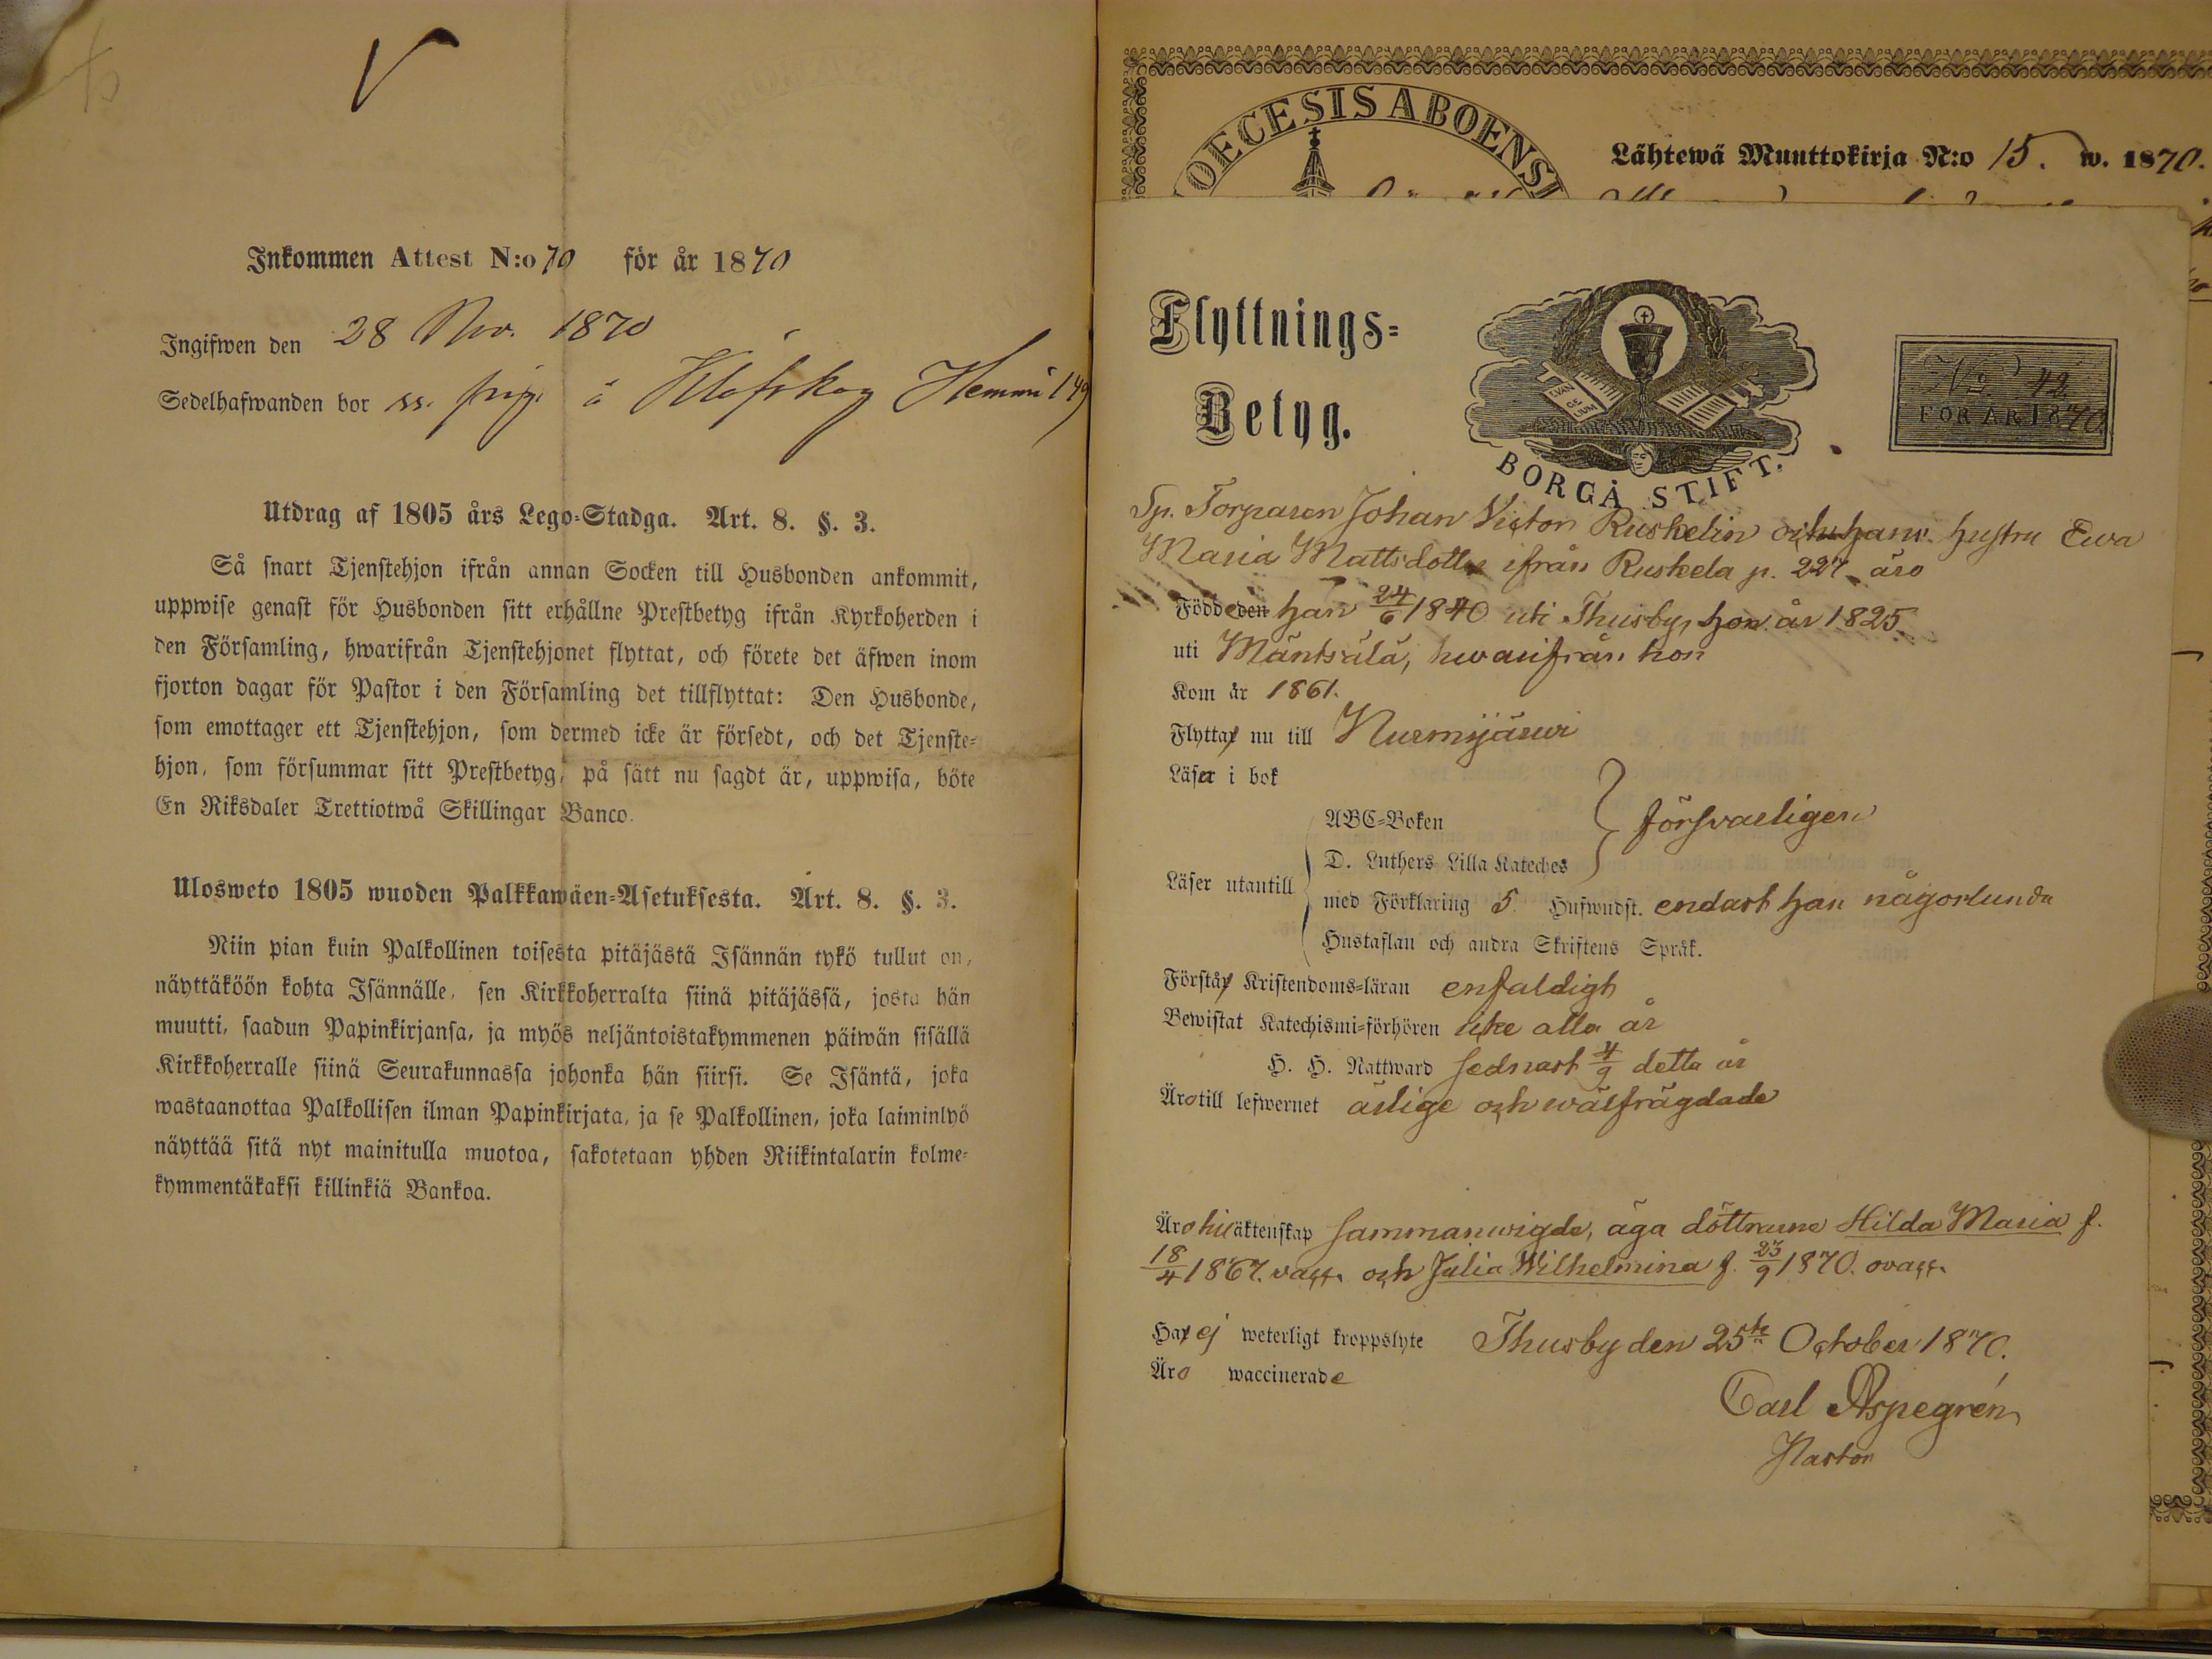 Inkommen Attest N:o 70 för år 1870
Ingifwen den 28 Nov. 1870
Sedelhafwanden bor ss. pig. å Klöfskog Hemmi 149
Utdrag af 1805 års Lego-Stadga. Art. 8. §. 3.
Så snart Tjenstehjon ifrån annan Socken till Husbonden ankommit,
uppwise genast för Husbonden sitt erhållne Prestbetyg ifrån Kyrkoherden i
den Församling, hwarifrån Tjenstehjonet flyttat, och förete det äfwen inom
fjorton dagar för Pastor i den Församling det tillflyttat: Den Husbonde,
som emottager ett Tjenstehjon, som dermed icke är försedt, och det Tjenste-
hjon, som försummar sitt Prestbetyg, på sätt nu sagdt är, uppwisa, böte
En Riksdaler Trettiotwå Skillingar Banco.
Ulosweto 1805 wuoden Palkkawäen-Asetuksesta. Art. 8. §. 3.
Niin pian kuin Palkollinen toisesta pitäjästä Isännän tykö tullut on,
näyttäköön kohta Isännälle, sen Kirkkoherralta siinä pitäjässä, josta hän
muutti, saadun Papinkirjansa, ja myös neljäntoistakymmenen päiwän sisällä
Kirkkoherralle siinä Seurakunnassa johonka hän siirsi. Se Isäntä, joka
wastaanottaa Palkollisen ilman Papinkirjata, ja se Palkollinen, joka laiminlyö
näyttää sitä nyt mainitulla muotoa, sakotetaan yhden Riikintalarin kolme-
kymmentäkaksi killinkiä Bankoa.
OECESIS ABOENSI
Lähtewä Muuttokirja N:o 15. w. 1870.
Flyttnings-
Betyg.
EVAN
GE
LIUM
BORGÅ STIFT.
No 42.
FÖR ÅR 1870.
Sp. Torparen Johan Victor Ruskelin och hans hustru Ewa
Maria Mattsdotter ifrån Ruskela p. 227 äro
Födde den han 24/6 1840 uti Thusby, hon år 1825
uti Mäntsälä, hwarifrån hon
Kom år 1861.
Flyttar nu till Nurmijärwi
Läser i bok
ABC-Boken
försvarligen
D. Luthers Lilla Kateches
Läser utantill
med Förklaring 5 Hufwudst. endast han någorlunda
Hustaflan och andra Skriftens Språk.
Förstår Kristendoms-läran enfaldigt
Bewistat Katechismi-förhören icke alla år
H. H. Nattward sednast 4/9 detta år
Äro till lefwernet ärlige och wälfrägdade
Äro hit äktenskap sammanwigde, äga döttrarne Hilda Maria f.
18/4 1867. vacc. och Julia Wilhelmina f. 23/9 1870. ovacc.
Har ej weterligt kroppslyte Thusby den 25te October 1870.
Äro waccinerade
Carl Aspegrén
Pastor